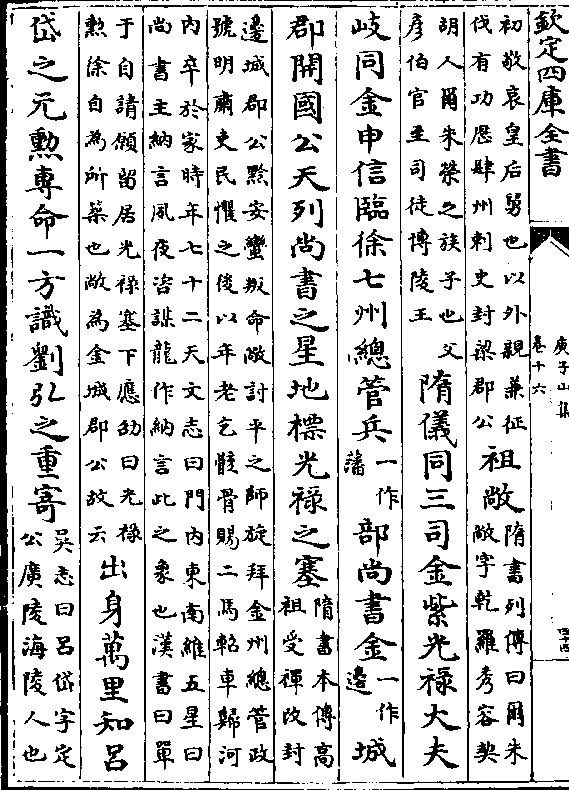 欽定四庫全書
庾子山集
卷十六
初敬哀皇后舅也以外親兼征
伐有功歷肆州刺史封梁郡公
祖敞
隋書列傳曰爾朱
敞字乾羅秀容契
胡人爾朱榮之族子也父
彥伯官至司徒博陵王
隋儀同三司金紫光祿大夫
岐同金申信臨徐七州總管兵
一作
藩
部尚書金
一作
邊
城
郡開國公天列尚書之星地標光祿之塞
隋書本傳高
祖受禪改封
邊城郡公黔安蠻叛命敞討平之師旋拜金州總管政
號明肅吏民懼之後以年老乞骸骨賜二馬軺車歸河
內卒於家時年七十二天文志曰門內東南維五星曰
尚書主納言夙夜咨謀龍作納言此之象也漢書曰單
于自請願留居光祿塞下應劭曰光祿
勲徐自為所築也敞為金城郡公故云
出身萬里知呂
岱之元勲專命一方識劉弘之重寄
吳志曰呂岱字定
公廣陵海陵人也